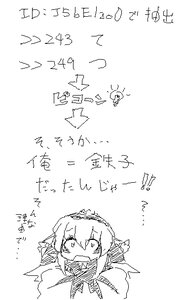 ID:J5bE1zo0で抽出
>>243 て
>>249 つ
ピコーン
そ、そうか…
俺 = 鉄子
だったんじゃー!!
そ…
そんな
理由で…